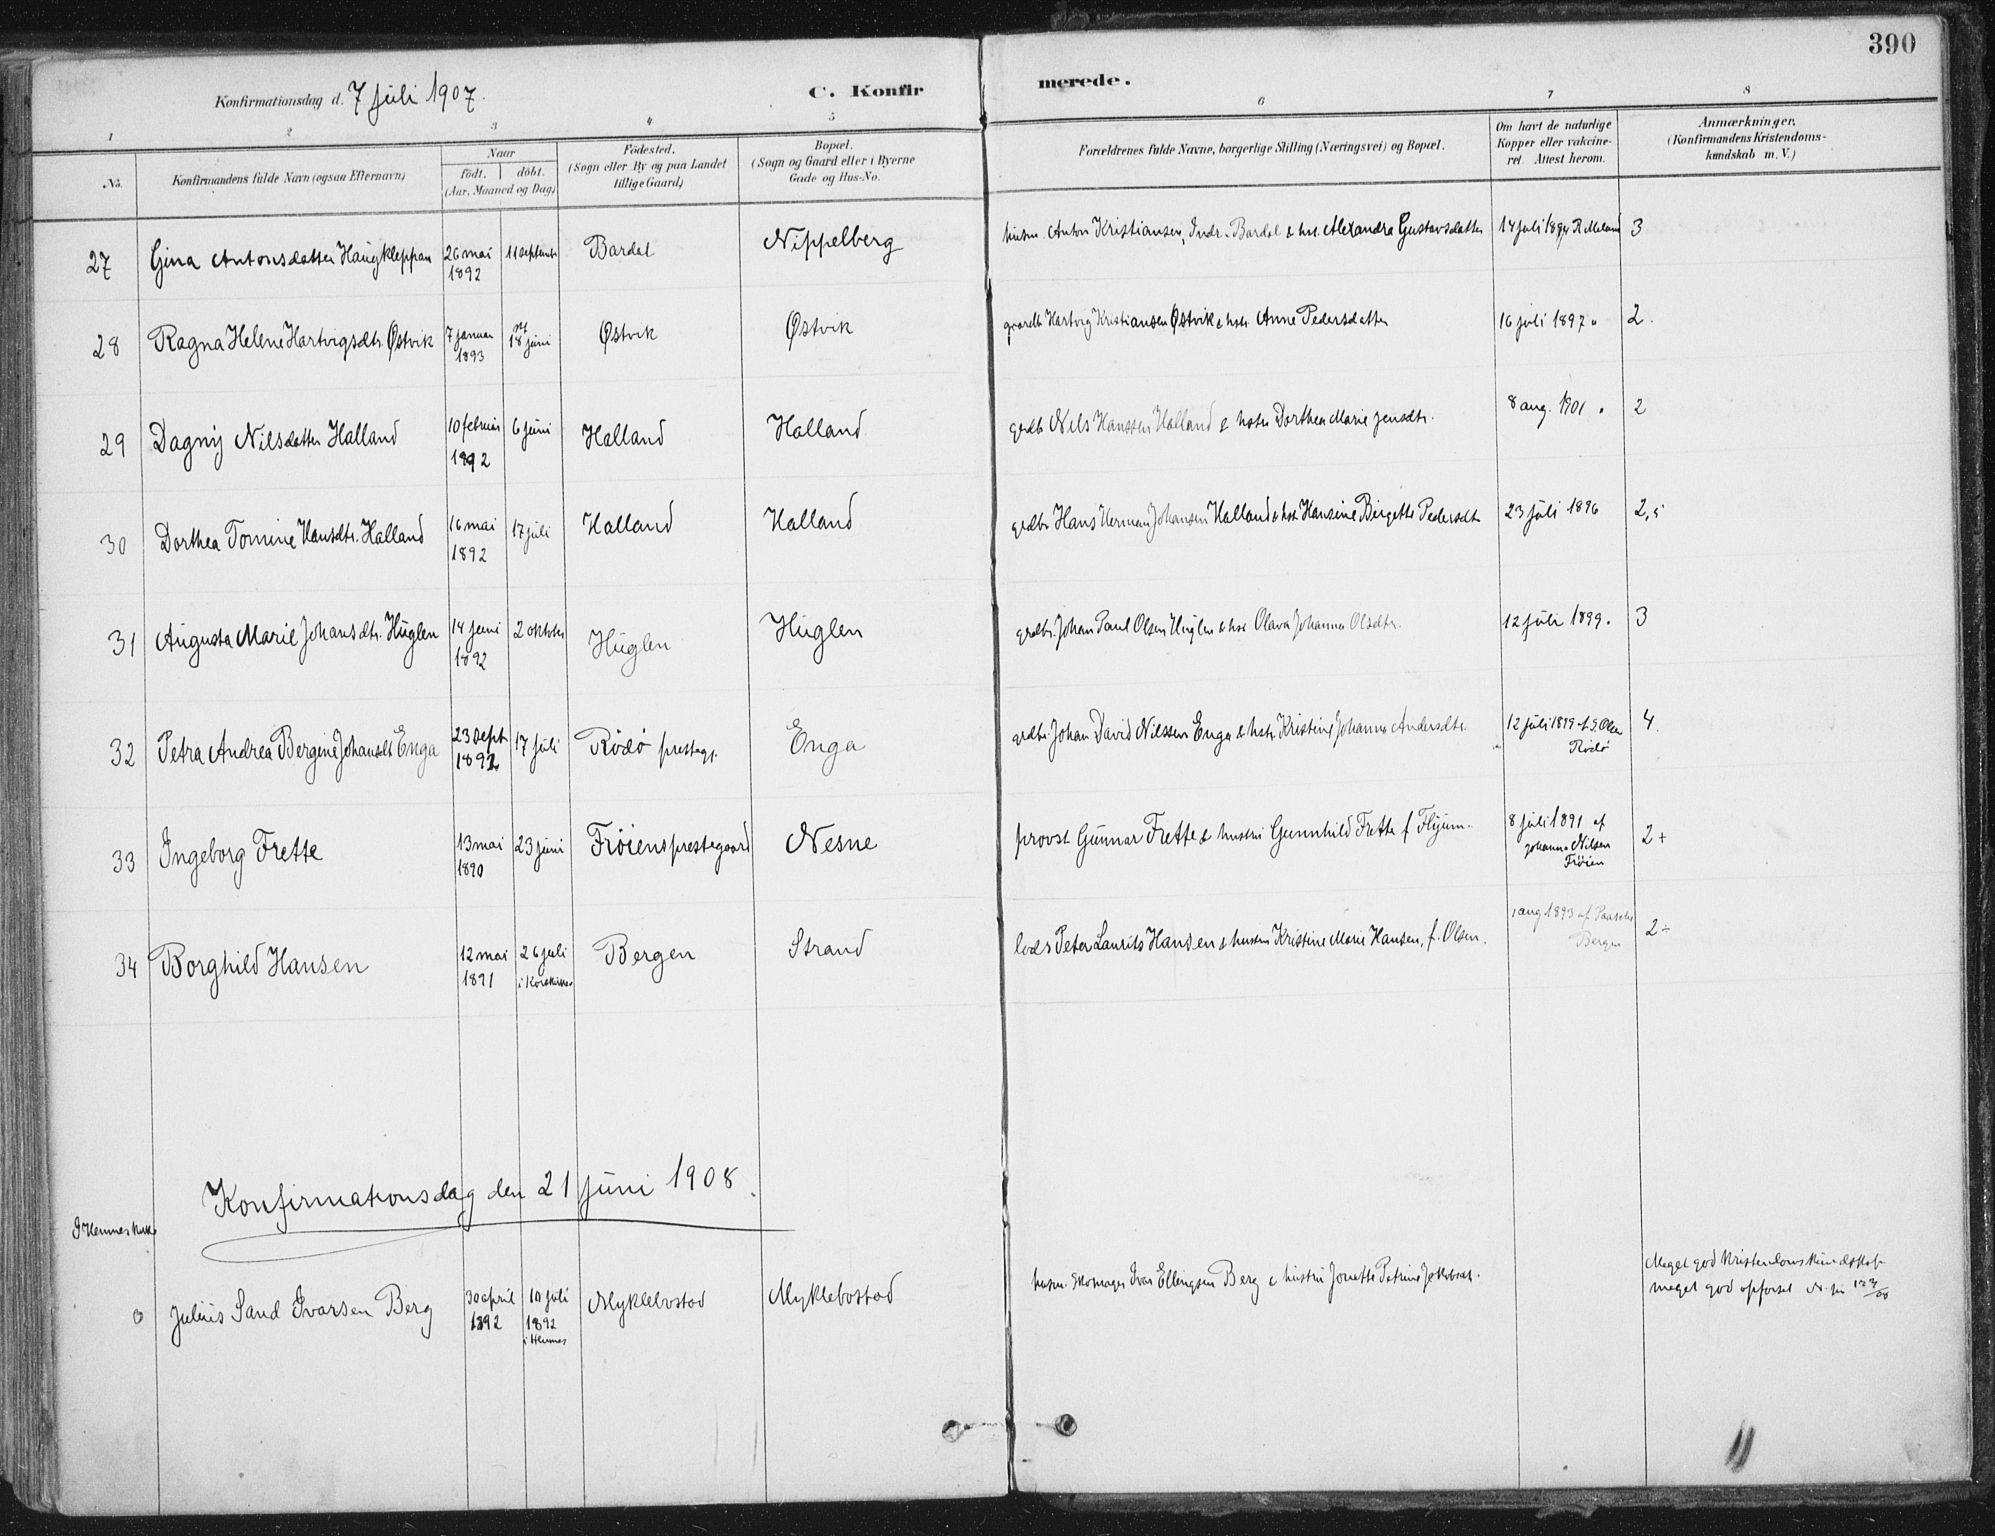 390
Konfirmationsdag d. 7 juli 1907.
C. Konfirmerede.
1 2 3 4 5 6 7 8
No.
Konfirmandens fulde Navn (ogsaa Efternavn)
Naar
födt. döbt.
(Aar, Maaned og Dag)
Födested.
(Sogn eller By og paa Landet
tillige Gaard)
Bopæl.
(Sogn og Gaard eller i Byerne
Gade og Hus-No.
Forældrenes fulde Navne, borgerlige Stilling (Næringsvei) og Bopæl.
Om havt de naturlige
Kopper eller vakcine-
ret. Attest herom.
Anmærkninger.
(Konfirmandens Kristendoms-
kundskab m. V.)
27 Gina Antonsdatter Haugkleppan 26 mai 1892 11 september Bardal Nippelberg husm. Anton Kristiansen, Indr. Bardal & hst. Alexandra Gustavsdatter 14 juli 3
28 Ragna Helene Hartvigsdtr. Østvik 7 januar 1893 18 juni Østvik Østvik gaardb Hartvig Kristiansen Østvik & hstr Anne Pedersdatter 16 juli 1897 " 2.
29 Dagny Nilsdatter Halland 10 februar 1892 6 juni Halland Halland grdb Nils Hanssen Halland & hstru Dorthea Marie Jensdtr. 8 aug. 1901 " 2
30 Dorthea Tomine Hansdtr. Halland 16 mai 1892 17 juli Halland Halland grdbr Hans Herman Johansen Halland & hst Hansine Birgette Pedersdtr 23 juli 1896 2,5
31 Augusta Marie Johansdtr. Huglen 14 juni 1892 2 oktober Huglen Huglen grdbr. Johan Paul Olsen Huglen & hst Olava Johanna Olsdtr. 12 juli 1899. 3
32 Petra Andrea Bergine Johansdt Enga 23 sept 1892 17 juli Rödö prestegj. Enga grdbr. Johan David Nilssen Enga & hstr Kristine Johanna Andersdtr. 12 juli 1899 Rödö 4.
33 Ingeborg Frette 13 mai 1890 23 juni Fröiens prestegaard Nesne provst Gunnar Frette & hustru Gunnhild Frette f Flyum. 8 juli 1891 af Johanna Nilsen Fröien 2+
34 Borghild Hansen 12 mai 1891 26 juli i Korskirken Bergen Strand lods Peter Laurits Hansen & hustru Kristine Marie Hansen, f. Olsen. 1 aug 1893 af Paasche Bergen 2÷
Konfirmationsdag den 21 juni 1908.
I Hemnes kirke
0 Julius Sand Ivarsen Berg 30 april 1892 10 juli 1892 i Hemnes Myklebostad Myklebostad husm. skomager Ivar Ellingsen Berg & hustru Jonette Petrine Jakobsdt. Meget god kristendomskundskap
meget god opførsel